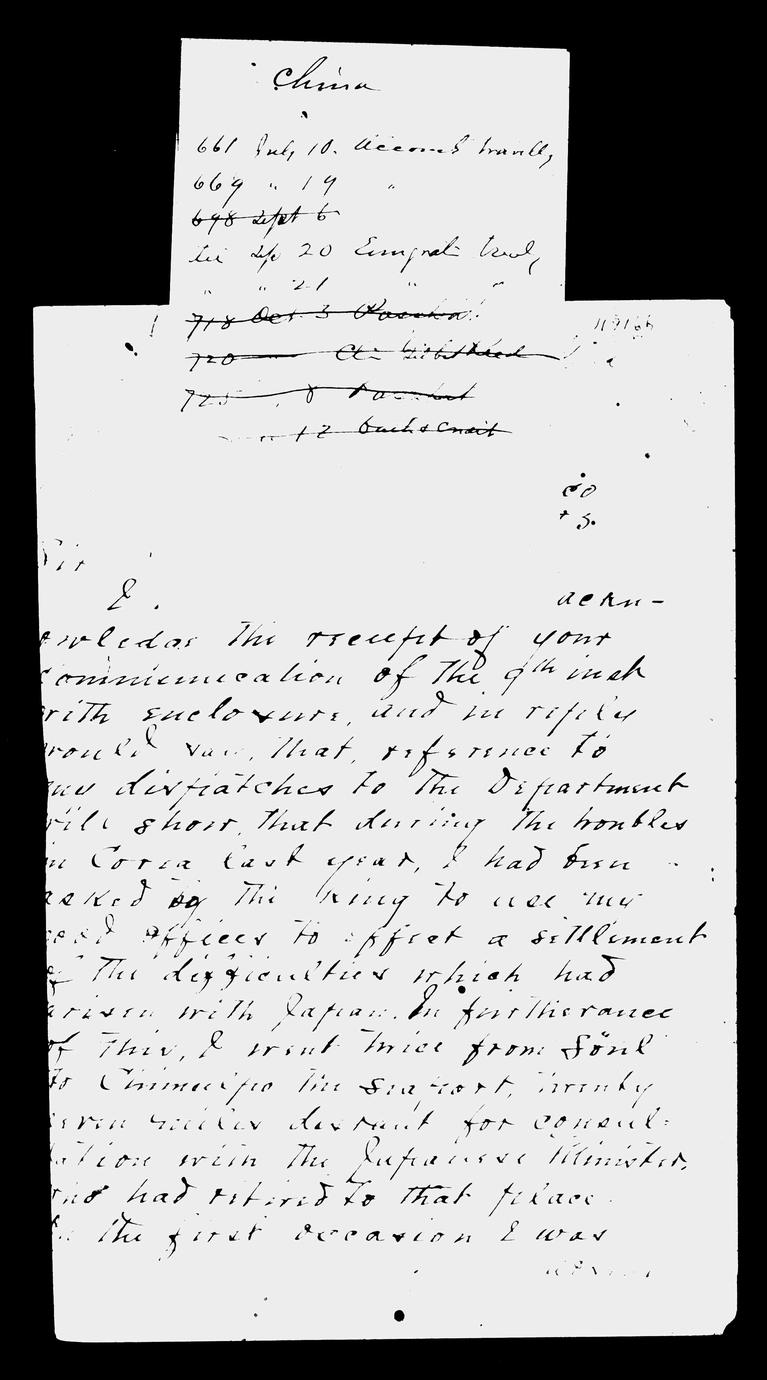 China
661 July 10. Account travell,
669 " 19 "
698 Sept 6
20 Emigrat
" " 21 " "
718 Oct. 3
720
725 8
12
Sir
I ackn-
owledge the receipt of your
communication of the 9th inst
with enclosure, and in reply
would say, that, reference to
my dispatches to the Department
will show, that during the troubles
in Corea last year, I had been
asked by the King to use my
good offices to effect a settlement
of the difficulties which had
arisen with Japan. In furtherance
of this, I went twice from Söul
to Chimulpo the seaport, twenty
seven miles distant for consul-
tation with the Japanese Minister,
who had retired to that place.
On the first occasion I was